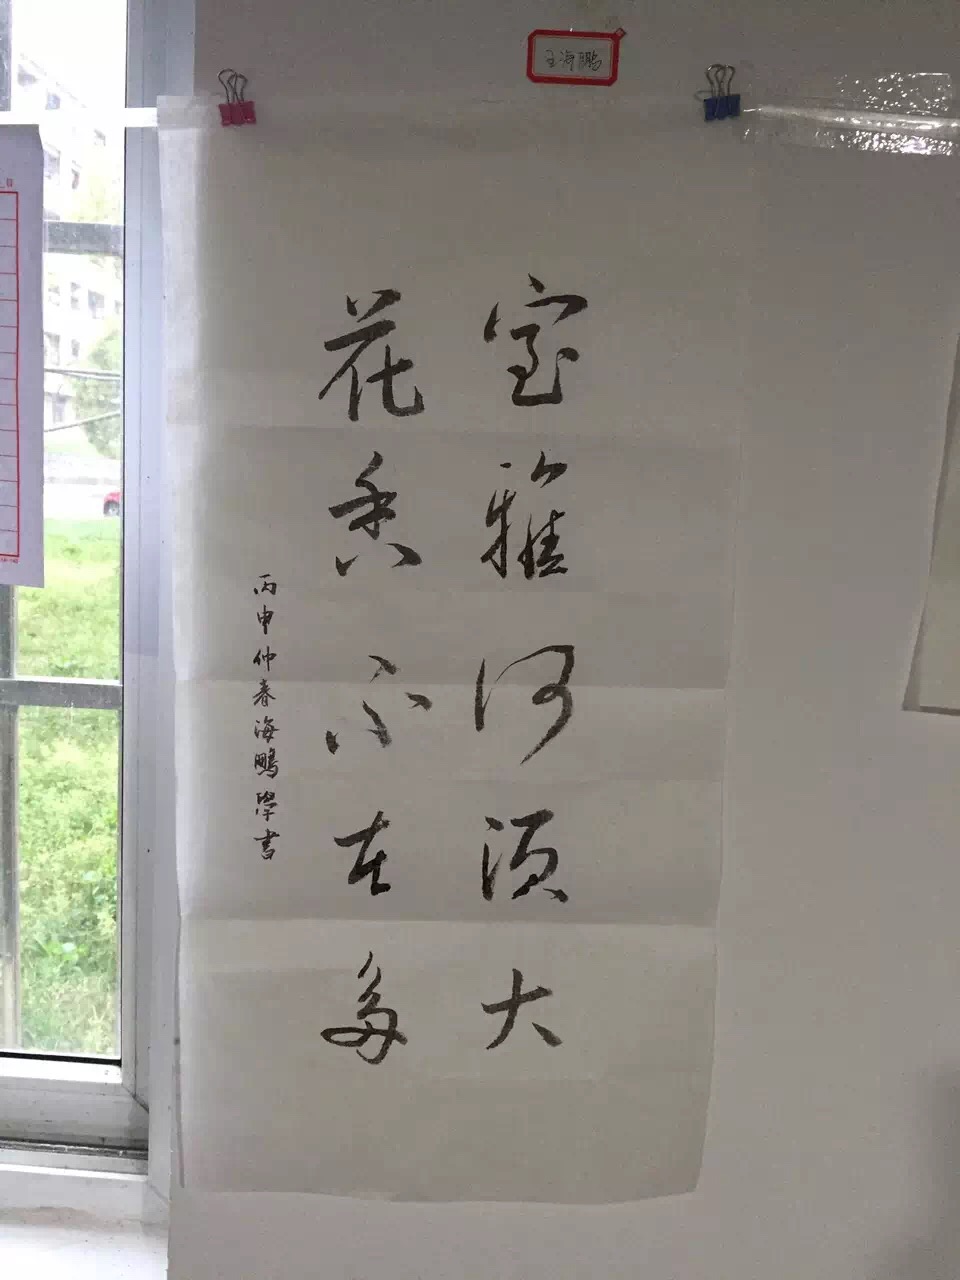 王海鹏
室雅何须大
花香不在多
丙申仲春海鵬學書